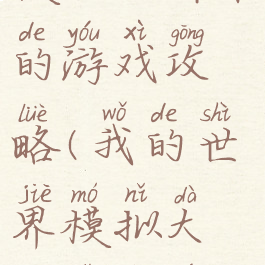 de yóu xì gōng
的游戏攻
lüè wǒ de shì
略(我的世
jiè mó nǐ dà
界模拟大